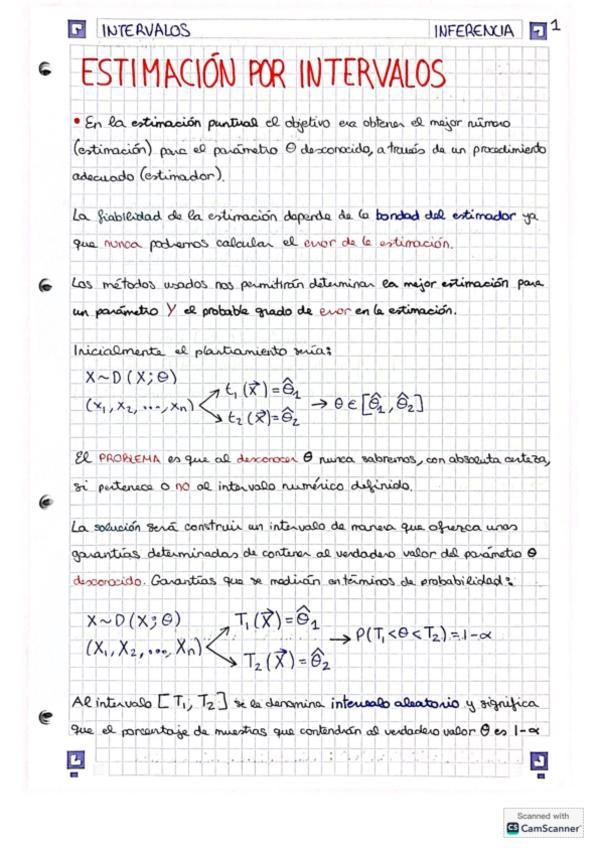 INTERVALOS INFERENCIA 1
ESTIMACIÓN POR INTERVALOS
• En la estimación puntual el objetivo era obtener el mejor número
(estimación) para el parámetro θ desconocido, a través de un procedimiento
adecuado (estimador).
La fiabilidad de la estimación depende de la bondad del estimador ya
que nunca podremos calcular el error de la estimación.
Los métodos usados nos permitirán determinar la mejor estimación para
un parámetro Y el probable grado de error en la estimación.
Inicialmente el plantiamiento sería:
X~D(X;θ)
(x₁, x₂, ..., xₙ) t₁(x⃗)=θ̂₁ t₂(x⃗)=θ̂₂ → θ ∈ [θ̂₁, θ̂₂]
El PROBLEMA es que al desconocer θ nunca sabremos, con absoluta certeza,
si pertenece o no al intervalo numérico definido.
La solución será construir un intervalo de manera que ofrezca unas
garantías determinadas de contener al verdadero valor del parámetro θ
desconocido. Garantías que se medirán en términos de probabilidad:
X~D(X;θ)
(X₁, X₂, ..., Xₙ) T₁(X⃗)=θ̂₁ T₂(X⃗)=θ̂₂ → P(T₁<θ<T₂)=1-α
Al intervalo [T₁, T₂] se le denomina intervalo aleatorio y significa
que el porcentaje de muestras que contendrán al verdadero valor θ es 1-α
Scanned with
CS CamScanner